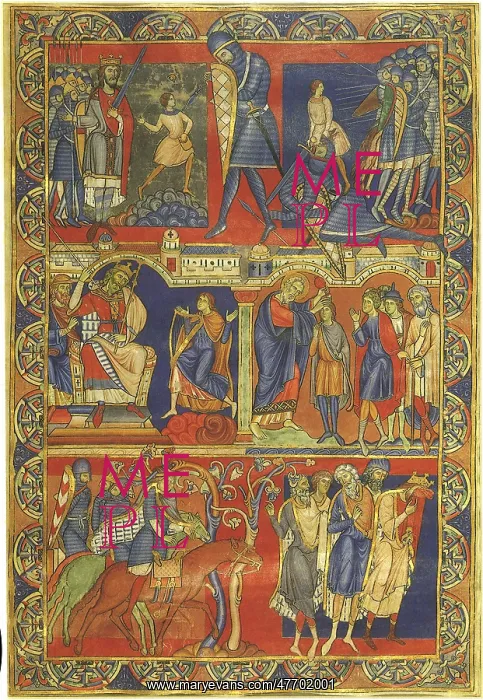 ME
PL
ME
PL
www.maryevans.com/47702001